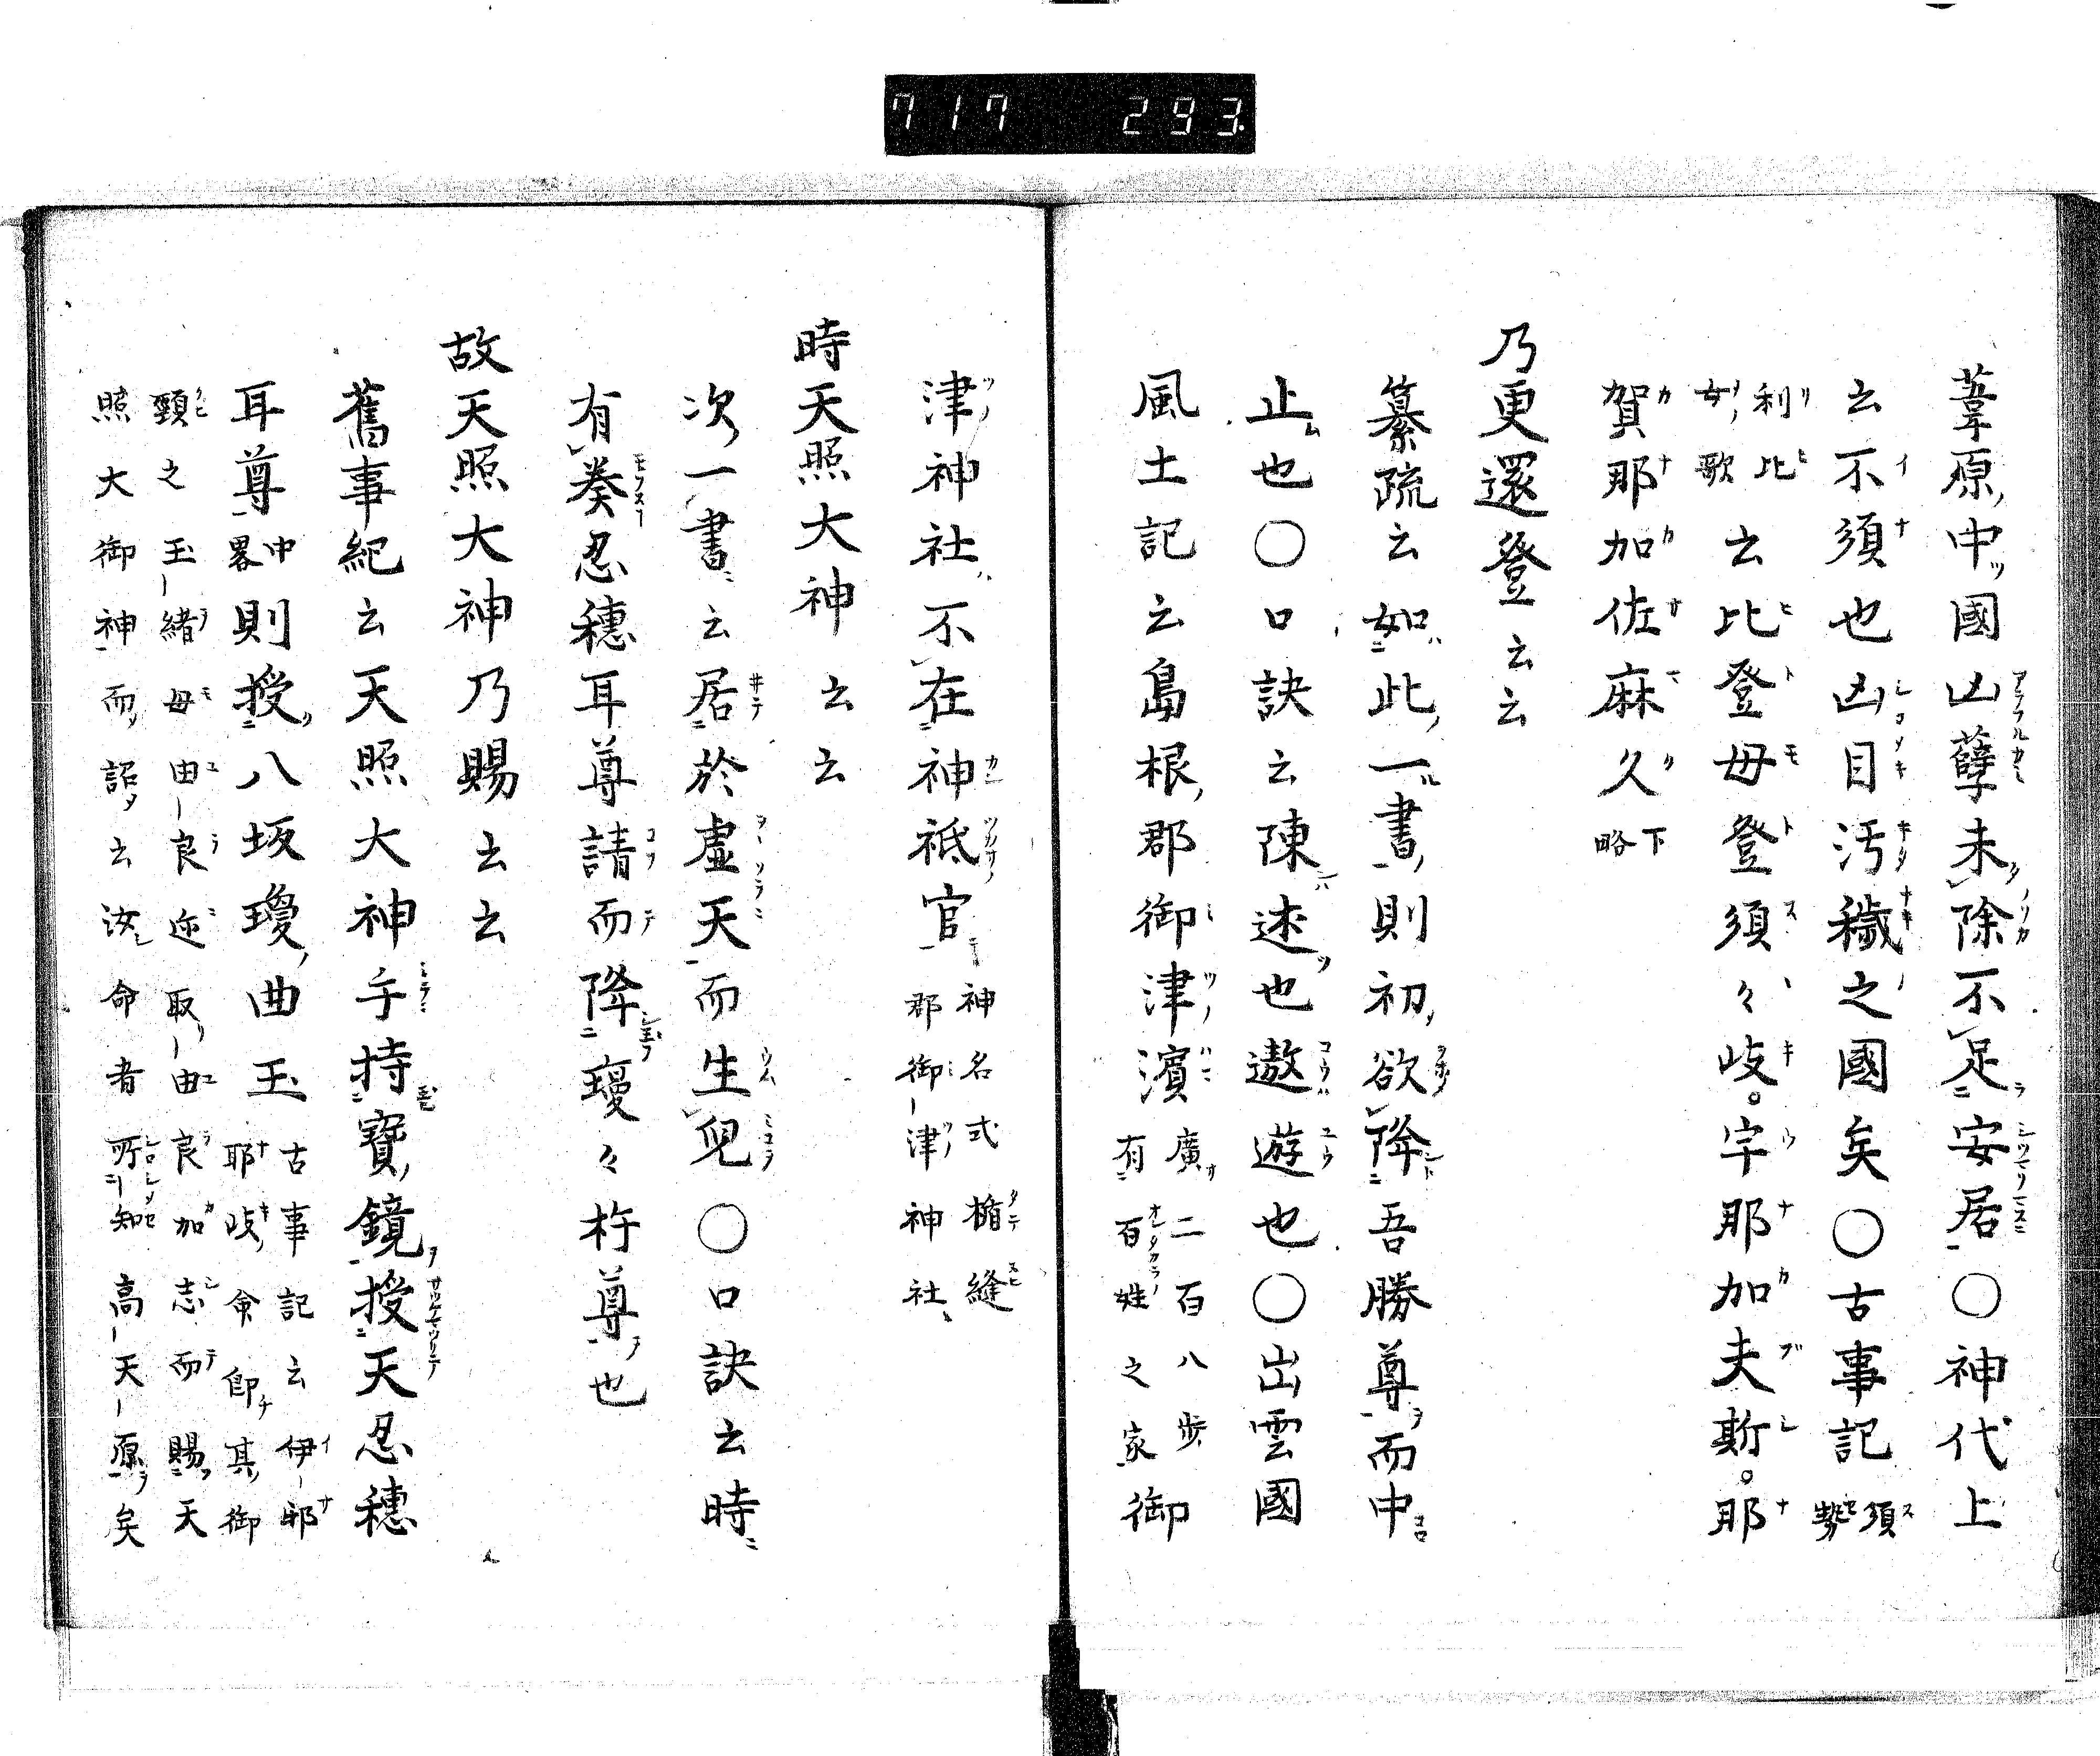 717 293
葦原中國凶孽未除不足安居〇神代上
云不須也凶目汚穢之國矣〇古事記須勢
利比女歌云比登母登須々岐。宇那加夫斯。那
賀那加佐麻久下略
乃更還登云云
纂疏云如此一書則初欲降吾勝尊而中
止也〇口訣云陳述也遨遊也〇出雲國
風土記云島根郡御津濱廣二百八歩有百姓之家御
津神社不在神祇官神名式楯縫郡御津神社
時天照大神云云
次一書云居於虛天而生兒〇口訣云時
有奏忍穗耳尊請而降瓊々杵尊也
故天照大神乃賜云云
舊事紀云天照大神手持寶鏡授天忍穗
耳尊中畧則授八坂瓊曲玉古事記云伊耶耶岐命卽其御
頸之玉緒母由良迩取由良加志而賜天
照大御神而詔云汝命者所知高天原矣